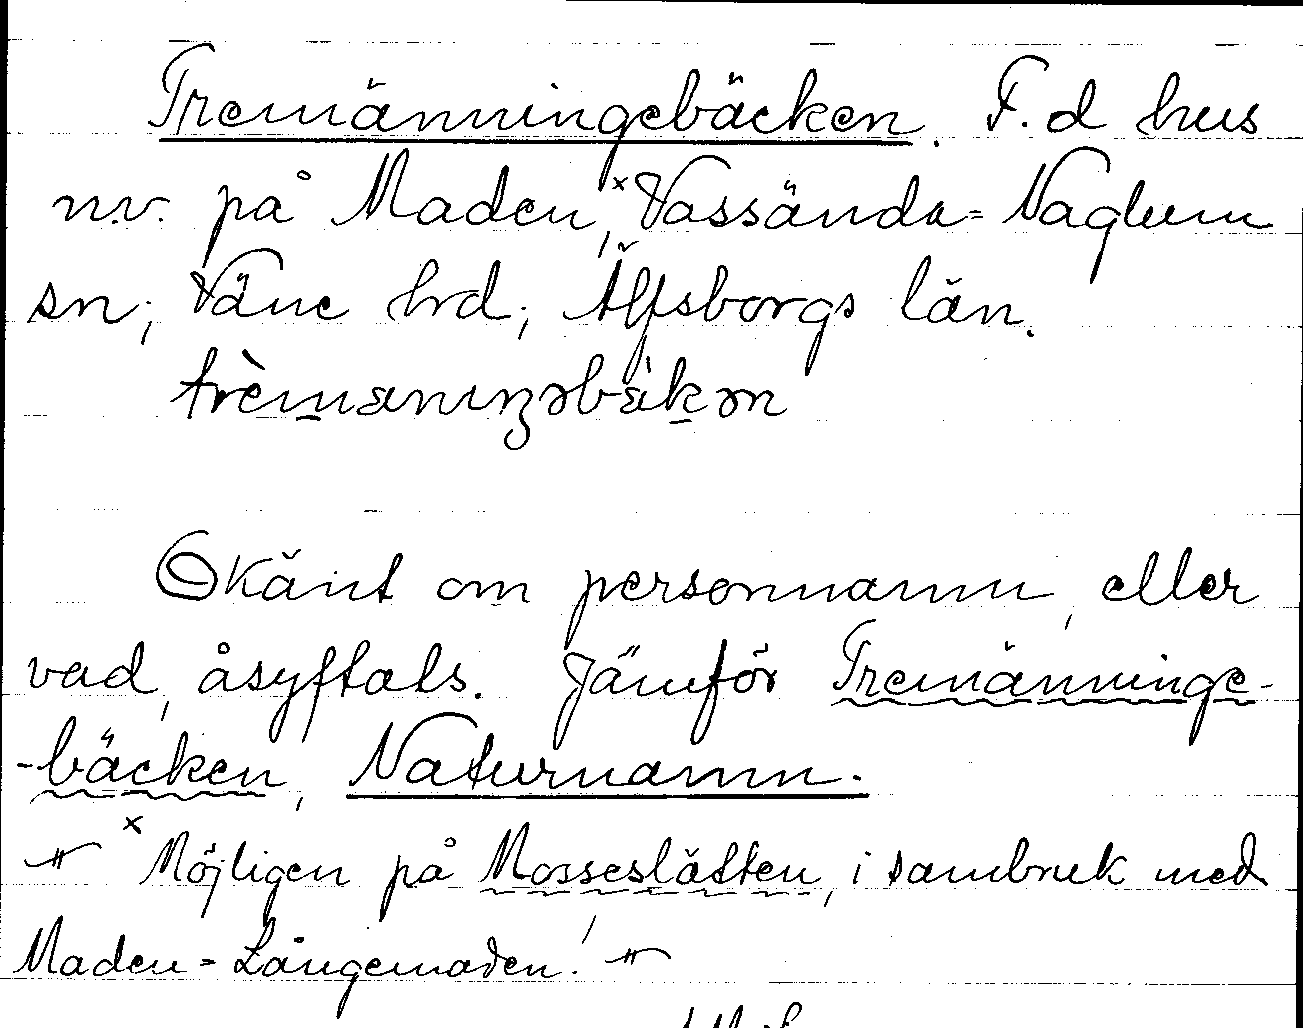 Tremänningebäcken. F.d hus
n.v. på Maden,ˣ Vassända-Naglum
sn; Väne hrd; Älfsborgs län.
trèmänıŋəbä̀kən
Okänt om personnamn, eller
vad, åsyftats. Jämför Tremänninge-
-bäcken, Naturnamn.
ˣ Möjligen på Mosseslätten, i sambruk med
Maden-Långemaden!